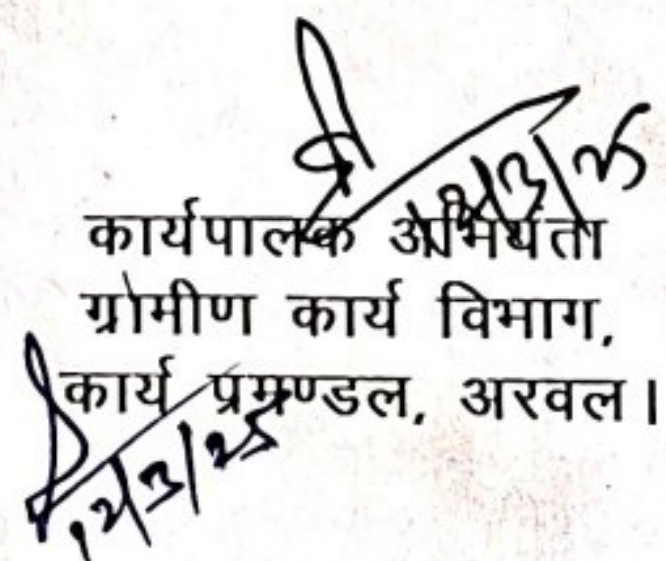 12/3/25
कार्यपालक अभियंता
ग्रामीण कार्य विभाग,
कार्य प्रमण्डल, अरवल।
12/3/25